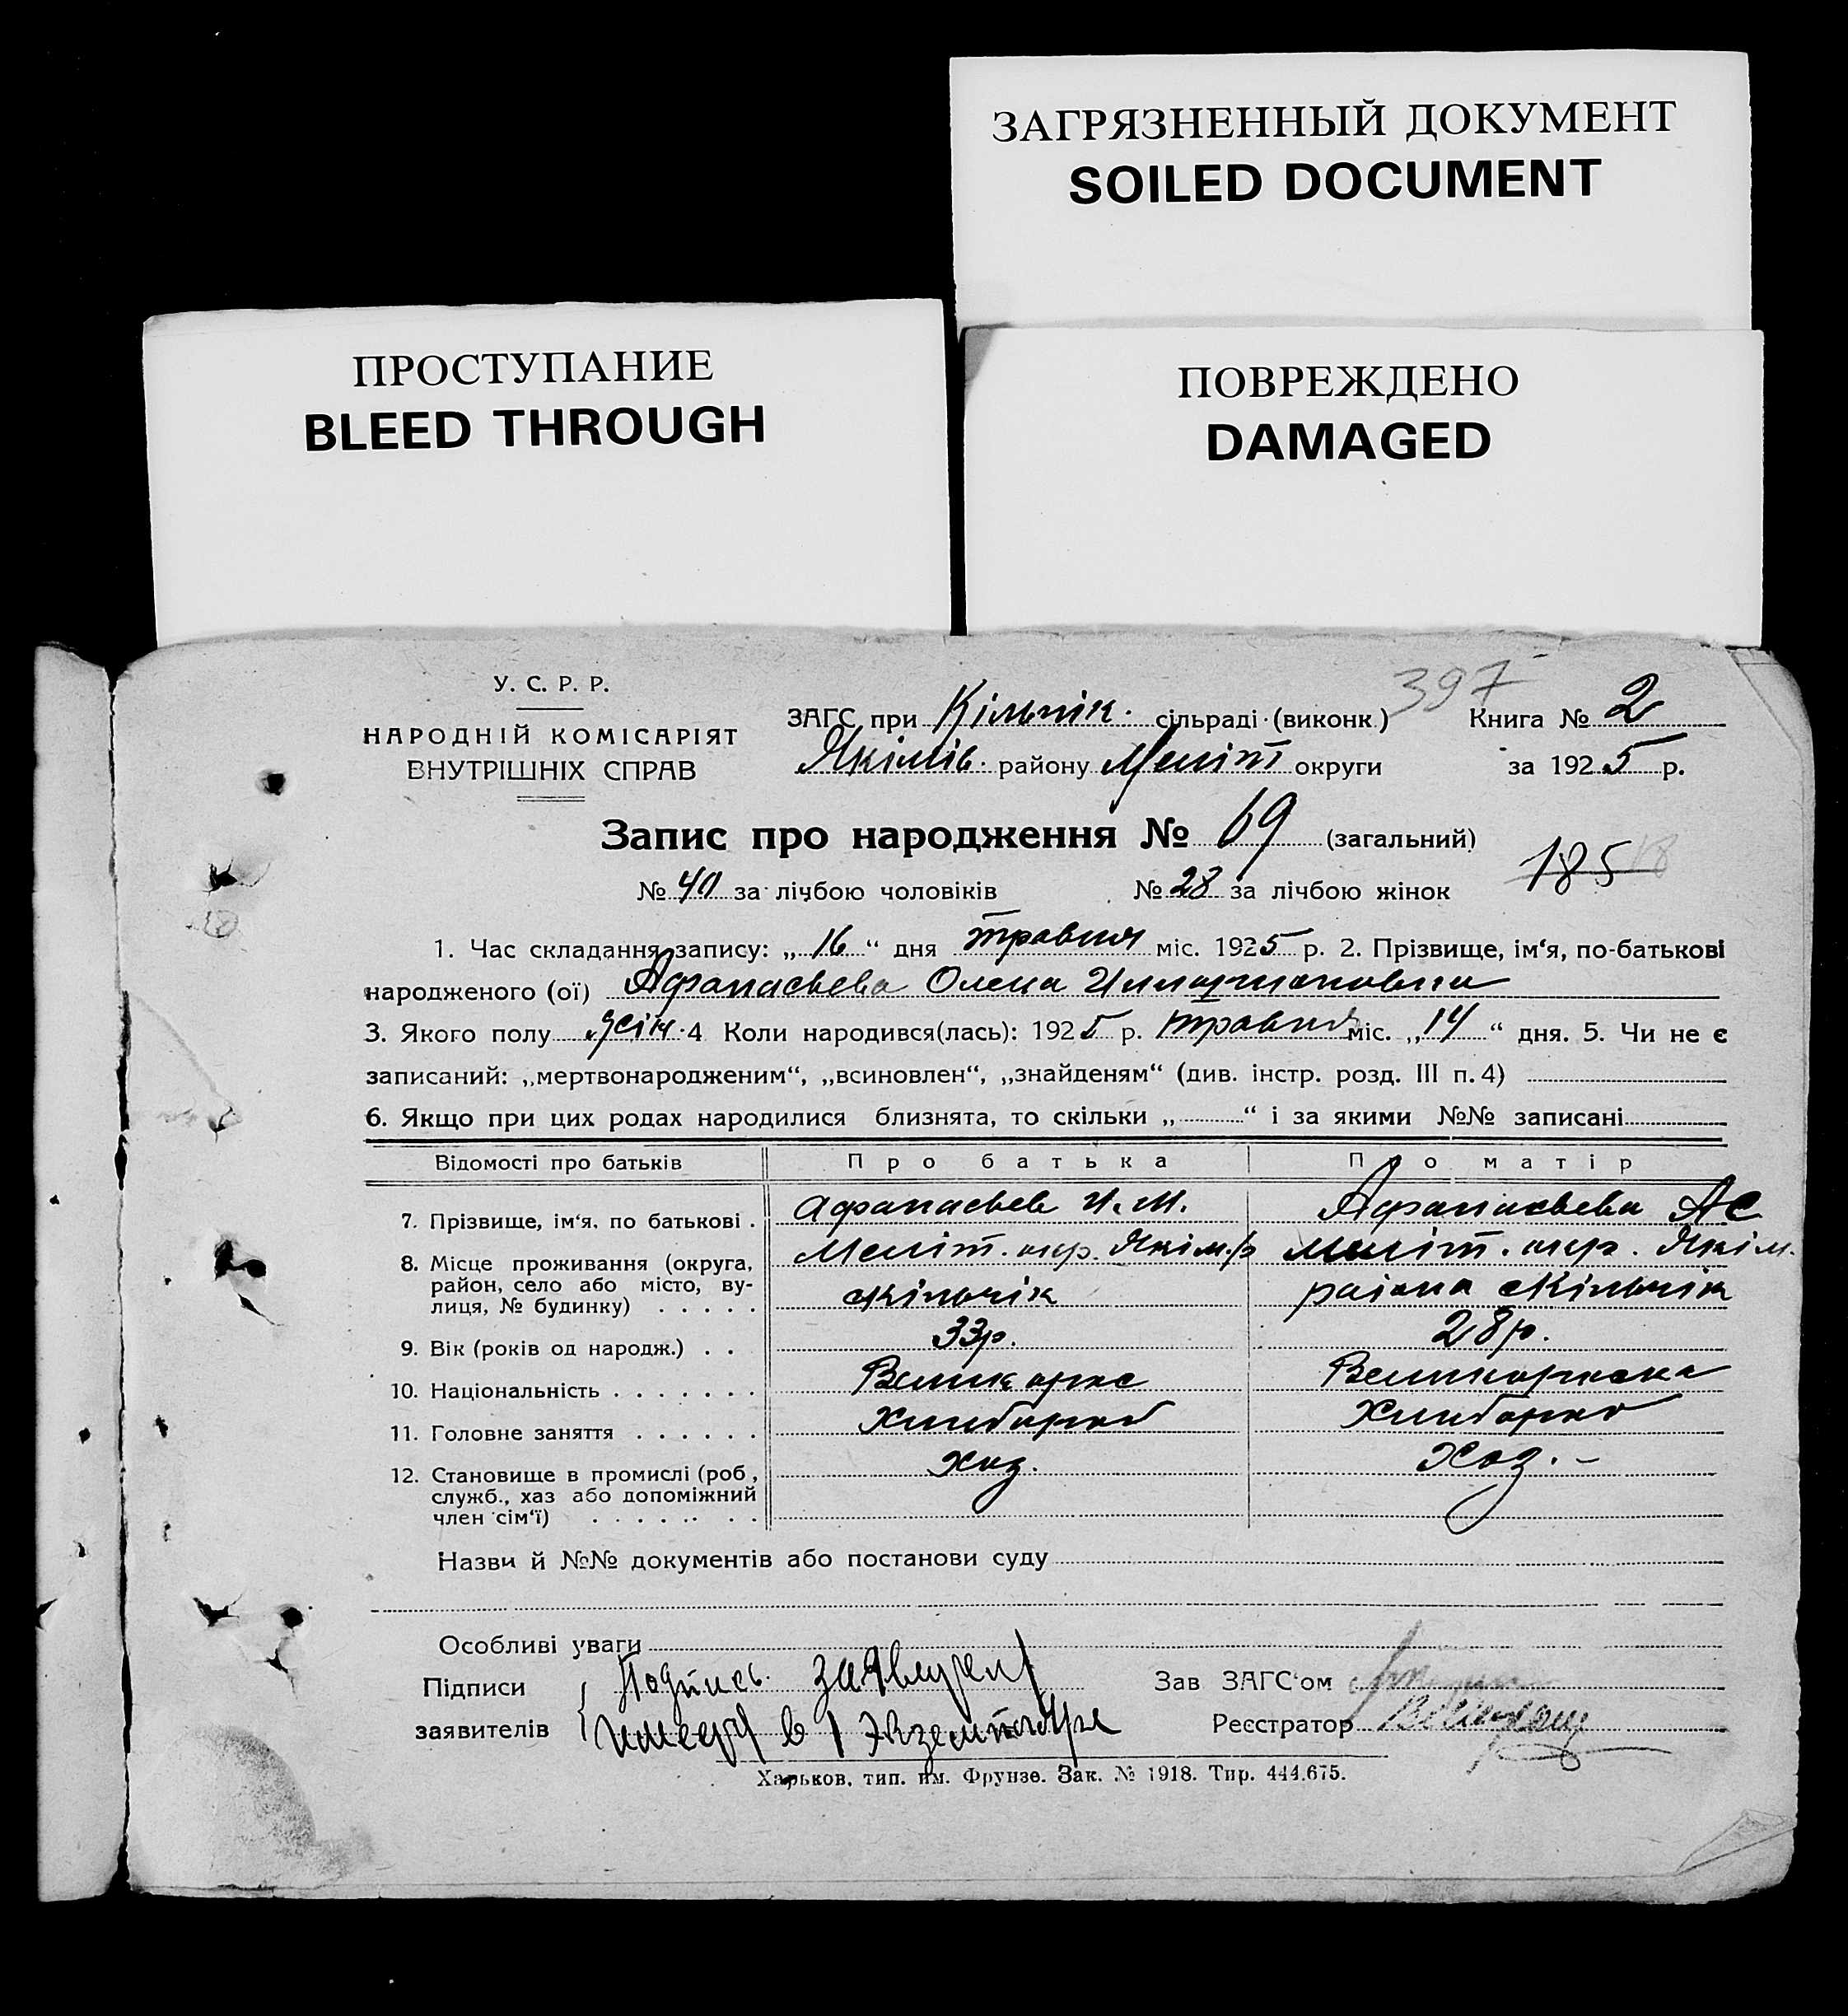 ЗАГРЯЗНЕННЫЙ ДОКУМЕНТ
SOILED DOCUMENT
ПРОСТУПАНИЕ
BLEED THROUGH
ПОВРЕЖДЕНО
DAMAGED
397
У. С. Р. Р.
НАРОДНІЙ КОМІСАРІЯТ
ВНУТРІШНІХ СПРАВ
ЗАГС при Кільчік. сільраді (виконк.) Книга № 2
Якімів. району Меліт округи за 1925 р.
Запис про народження № 69 (загальний)
185
№ 40 за лічбою чоловіків № 28 за лічбою жінок
1. Час складання запису: „16“ дня травня міс. 1925 р. 2. Прізвище, ім‘я, по-батькові
народженого (ої) Афанасьева Олена
3. Якого полу жін. 4 Коли народився(лась): 1925 р. травня міс. „14“ дня. 5. Чи не є
записаний: „мертвонародженим“, „всиновлен“, „знайденям“ (див. інстр. розд. III п. 4)
6. Якщо при цих родах народилися близнята, то скільки „ “ і за якими №№ записані
Відомості про батьків Про батька Про матір
7. Прізвище, ім‘я, по батькові . Афанасьев И. М. Афанасьева АС
8. Місце проживання (округа, Меліт. окр. Якім. р Меліт. окр. Якім.
район, село або місто, ву-
лиця, № будинку) . . . . . с Кільчік району с Кільчік
9. Вік (років од народж.) . . 33 р. 28 р.
10. Національність . . . . . . . Великорос Великоруска
11. Головне заняття . . . . . . Хлибороб Хлибороб
12. Становище в промислі (роб., Хоз. Хоз. –
служб., хаз або допоміжний
член сім‘ї) . . . . . . . .
Назви й №№ документів або постанови суду
Особливі уваги
Підписи Подпись заявител Зав ЗАГС‘ом
заявителів имеется в 1 экземпляре Реєстратор
Харьков, тип. им. Фрунзе. Зак. № 1918. Тир. 444.675.